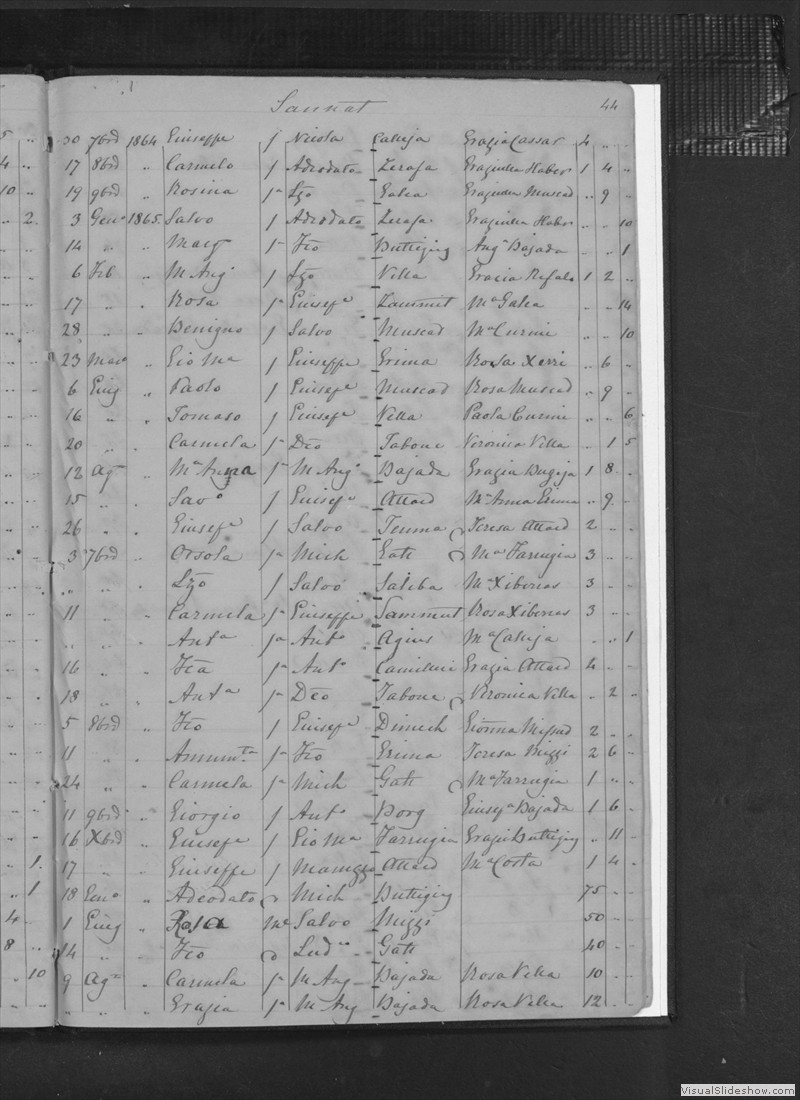 Sannat 44
30 7brd 1864 Giuseppe f Nicola Calleja Grazia Cassar 4 .. ..
17 8brd .. Carmelo f Adeodato Zerafa Graziulla Haber 1 4 ..
19 9brd .. Rosina fa Lzo Galea Graziulla Muscad .. 9 ..
3 Geno 1865 Salvo f Adeodato Zerafa Graziulla Haber .. .. 10
14 .. .. Marg fa Fco Buttigieg Anga Bajada .. .. 1
6 Feb .. M Anga f Lzo Vella Grazia Refalo 1 2 ..
17 .. .. Rosa fa Giusepe Zammit Ma Galea .. .. 14
28 .. .. Benigno f Salvo Muscad Ma Curmi .. .. 10
23 Maro .. Gio Ma f Giuseppe Grima Rosa Xerri .. 6 ..
6 Giug .. Paolo f Giusepe Muscad Rosa Muscad .. 9 ..
16 .. .. Tomaso f Giusepe Vella Paola Curmi .. .. 6
20 .. .. Carmela fa Dco Tabone Veronica Vella .. 1 5
12 Ago .. Ma Anna fa M Ango Bajada Grazia Bugeja 1 8 ..
15 .. .. Savo f Giusepe Attard Ma Anna Grima .. 9 ..
26 .. .. Giusepe f Salvo Teuma Teresa Attard 2 .. ..
3 7brd .. Orsola fa Mich Gatt Ma Farrugia 3 .. ..
.. .. .. Lzo f Salvo Saliba Ma Xiberras 3 .. ..
11 .. .. Carmela fa Giuseppe Sammut Rosa Xiberras 3 .. ..
.. .. .. Anta fa Anto Agius Ma Calleja .. .. 1
16 .. .. Fca fa Anto Camilleri Grazia Attard 4 .. ..
18 .. .. Anta fa Dco Tabone Veronica Vella .. 2 ..
5 8brd .. Fco f Giusepe Dimech 2 .. ..
11 .. .. Annunta fa Fco Grima Teresa Mizzi 2 6 ..
24 .. .. Carmela fa Mich Gatt Ma Farrugia 1 .. ..
11 9brd .. Giorgio f Anto Borg Giusepa Bajada 1 6 ..
16 Xbrd .. Giusepe f Gio Ma Farrugia Grazia Buttigieg .. 11 ..
17 .. .. Giuseppe f Attard Ma Costa 1 4 ..
18 Geno .. Adeodato Mich Buttigieg 75 .. ..
1 Giug .. Rosa Me Salvo Mizzi 50 .. ..
14 .. .. Fco Gatt 40 .. ..
9 Ago .. Carmela fa M Ang Bajada Rosa Vella 10 .. ..
.. .. .. Grazia fa M Ang Bajada Rosa Vella 12 .. ..
VisualSlideshow.com